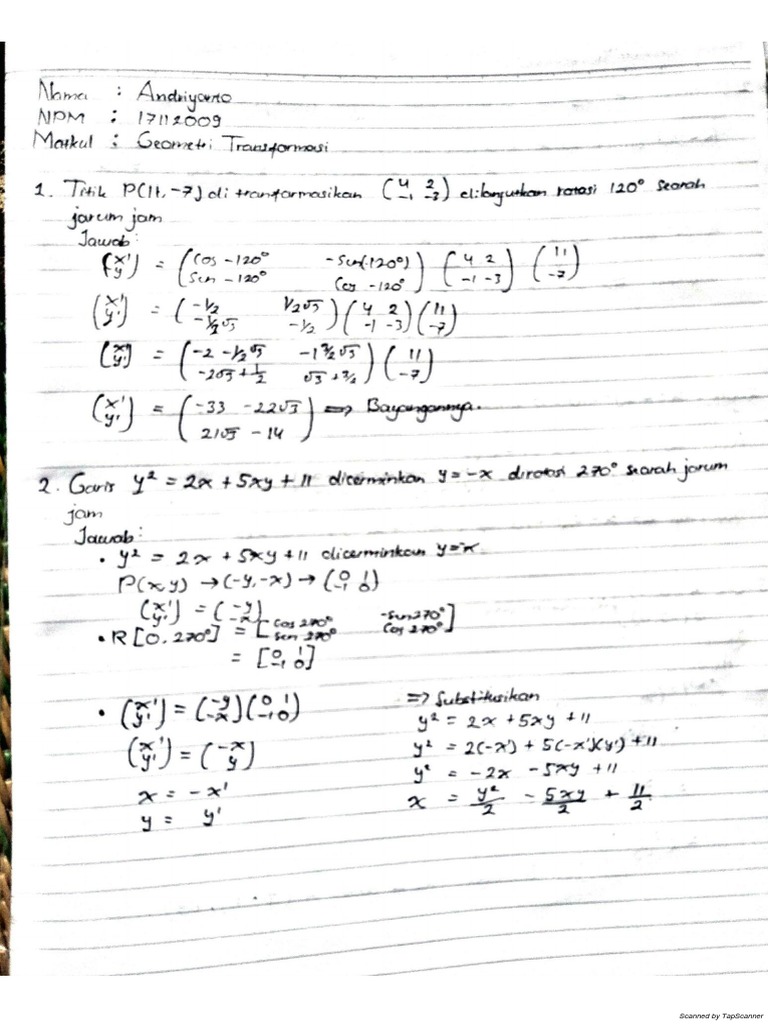 Nama : Andriyanto
NPM : 17112009
Matkul : Geometri Transformasi
1. Titik P(11, -7) di transformasikan (4 2 -1 -3) dilanjutkan rotasi 120° searah
jarum jam
Jawab:
(x' y') = (cos -120° -sin(-120°) sin -120° cos -120°) (4 2 -1 -3) (11 -7)
(x' y') = (-1/2 1/2√3 -1/2√3 -1/2) (4 2 -1 -3) (11 -7)
(x' y') = (-2 -1/2√3 -1 3/2√3 -2√3 + 1/2 √3 + 3/2) (11 -7)
(x' y') = (-33 -22√3 21√3 - 14) => Bayangannya.
2. Garis y² = 2x + 5xy + 11 dicerminkan y = -x dirotasi 270° searah jarum
jam
Jawab:
• y² = 2x + 5xy + 11 dicerminkan y=-x
P(x y) → (-y, -x) → (0 1 -1 0)
(x' y') = (-y -x)
• R[0. 270°] = [cos 270° -sin 270° sin 270° cos 270°]
= [0 1 -1 0]
• (x' y') = (-y -x) (0 1 -1 0)
(x' y') = (-x y)
x = -x'
y = y'
=> Substitusikan
y² = 2x + 5xy + 11
y² = 2(-x') + 5(-x')(y') + 11
y² = -2x - 5xy + 11
x = y²/2 - 5xy/2 + 11/2
Scanned by TapScanner